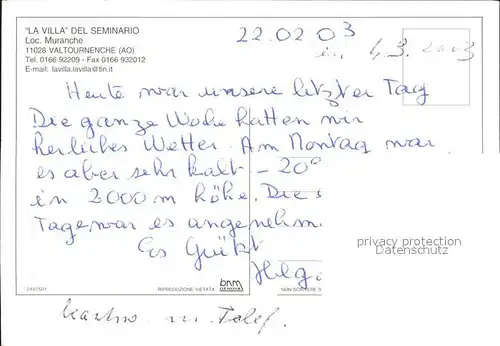 "LA VILLA" DEL SEMINARIO
Loc. Muranche
11028 VALTOURNENCHE (AO)
Tel. 0166 92209 - Fax 0166 932012
E-mail: lavilla.lavilla@tin.it
22.02 03
in 4,3. 2003
Heute war unsere letzter Tag
Die ganze Woche hatten wir
herliches Wetter. Am Montag war
es aber sehr kalt - 20°
in 2000 m höhe. Die
Tage war es angenehm.
Es Grüßt
Helg
privacy protection
Datenschutz
RIPRODUZIONE VIETATA
bnm
GENOVA
NON SCRIVERE
m. Telef.